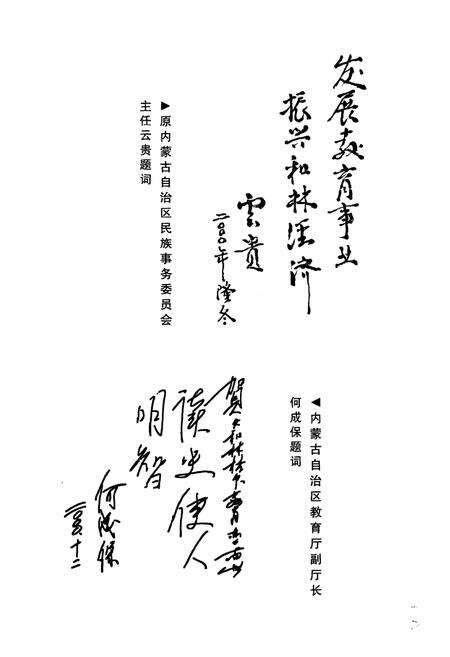 发展教育事业
振兴和林经济
雲贵
二〇〇〇年隆冬
▶原内蒙古自治区民族事务委员会
主任云贵题词
◀内蒙古自治区教育厅副厅长
何成保题词
贺
读史使人
明智
何成保
十二